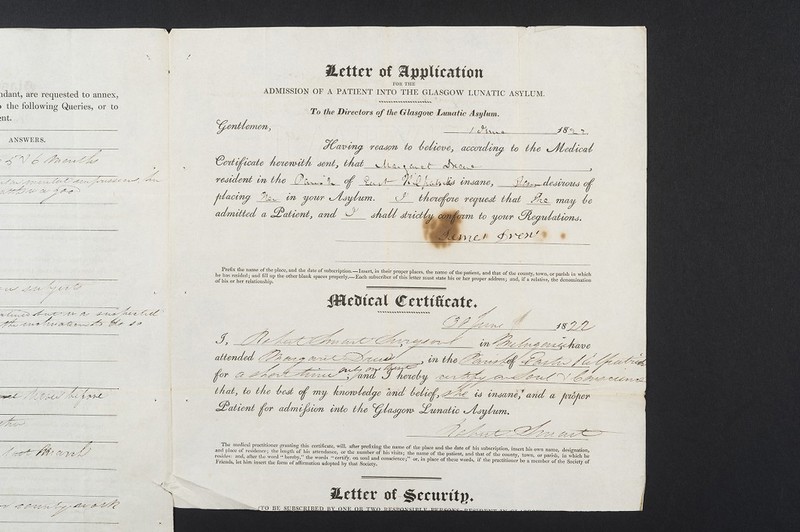 ndant, are requested to annex,
the following Queries, or to
ent.
ANSWERS.
5 or 6 Months
before
county work
Letter of Application
FOR THE
ADMISSION OF A PATIENT INTO THE GLASGOW LUNATIC ASYLUM.
To the Directors of the Glasgow Lunatic Asylum.
Gentlemen,
June 1822
Having reason to believe, according to the Medical
Certificate herewith sent, that Margaret Drew,
resident in the Parish of East Kilpatrick is insane, desirous of
placing her in your Asylum. I therefore request that She may be
admitted a Patient, and I shall strictly conform to your Regulations.
James Drew
Prefix the name of the place, and the date of subscription.—Insert, in their proper places, the name of the patient, and that of the county, town, or parish in which
he has resided; and fill up the other blank spaces properly.—Each subscriber of this letter must state his or her proper address; and, if a relative, the denomination
of his or her relationship.
Medical Certificate.
June 1822
I, Robert Smart Surgeon in Milngavie have
attended Margaret Drew, in the Parish of Easter Kilpatrick
for a short time only one visit; and I hereby certify on Soul & Conscience
that, to the best of my knowledge and belief, she is insane, and a proper
Patient for admission into the Glasgow Lunatic Asylum.
Robert Smart
The medical practitioner granting this certificate, will, after prefixing the name of the place and the date of his subscription, insert his own name, designation,
and place of residence; the length of his attendance, or the number of his visits; the name of the patient, and that of the county, town, or parish, in which he
resides: and, after the word "hereby," the words "certify, on soul and conscience;" or, in place of these words, if the practitioner be a member of the Society of
Friends, let him insert the form of affirmation adopted by that Society.
Letter of Security.
(TO BE SUBSCRIBED BY ONE OR TWO RESPONSIBLE PERSONS RESIDENT IN